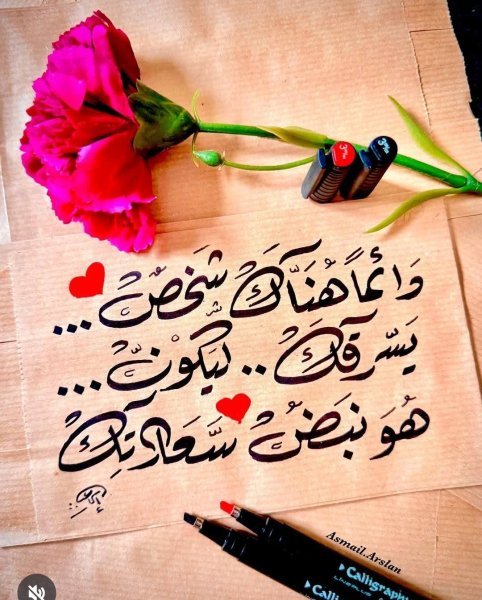 3mm
3mm
وَائماً هُنَاكَ شَخصٌ ...
يَسرقكَ .. ليَكونَ ...
هُو نبَضُ سَّعادتكِ
Asmail.Arslan
Calligraph
Calligra